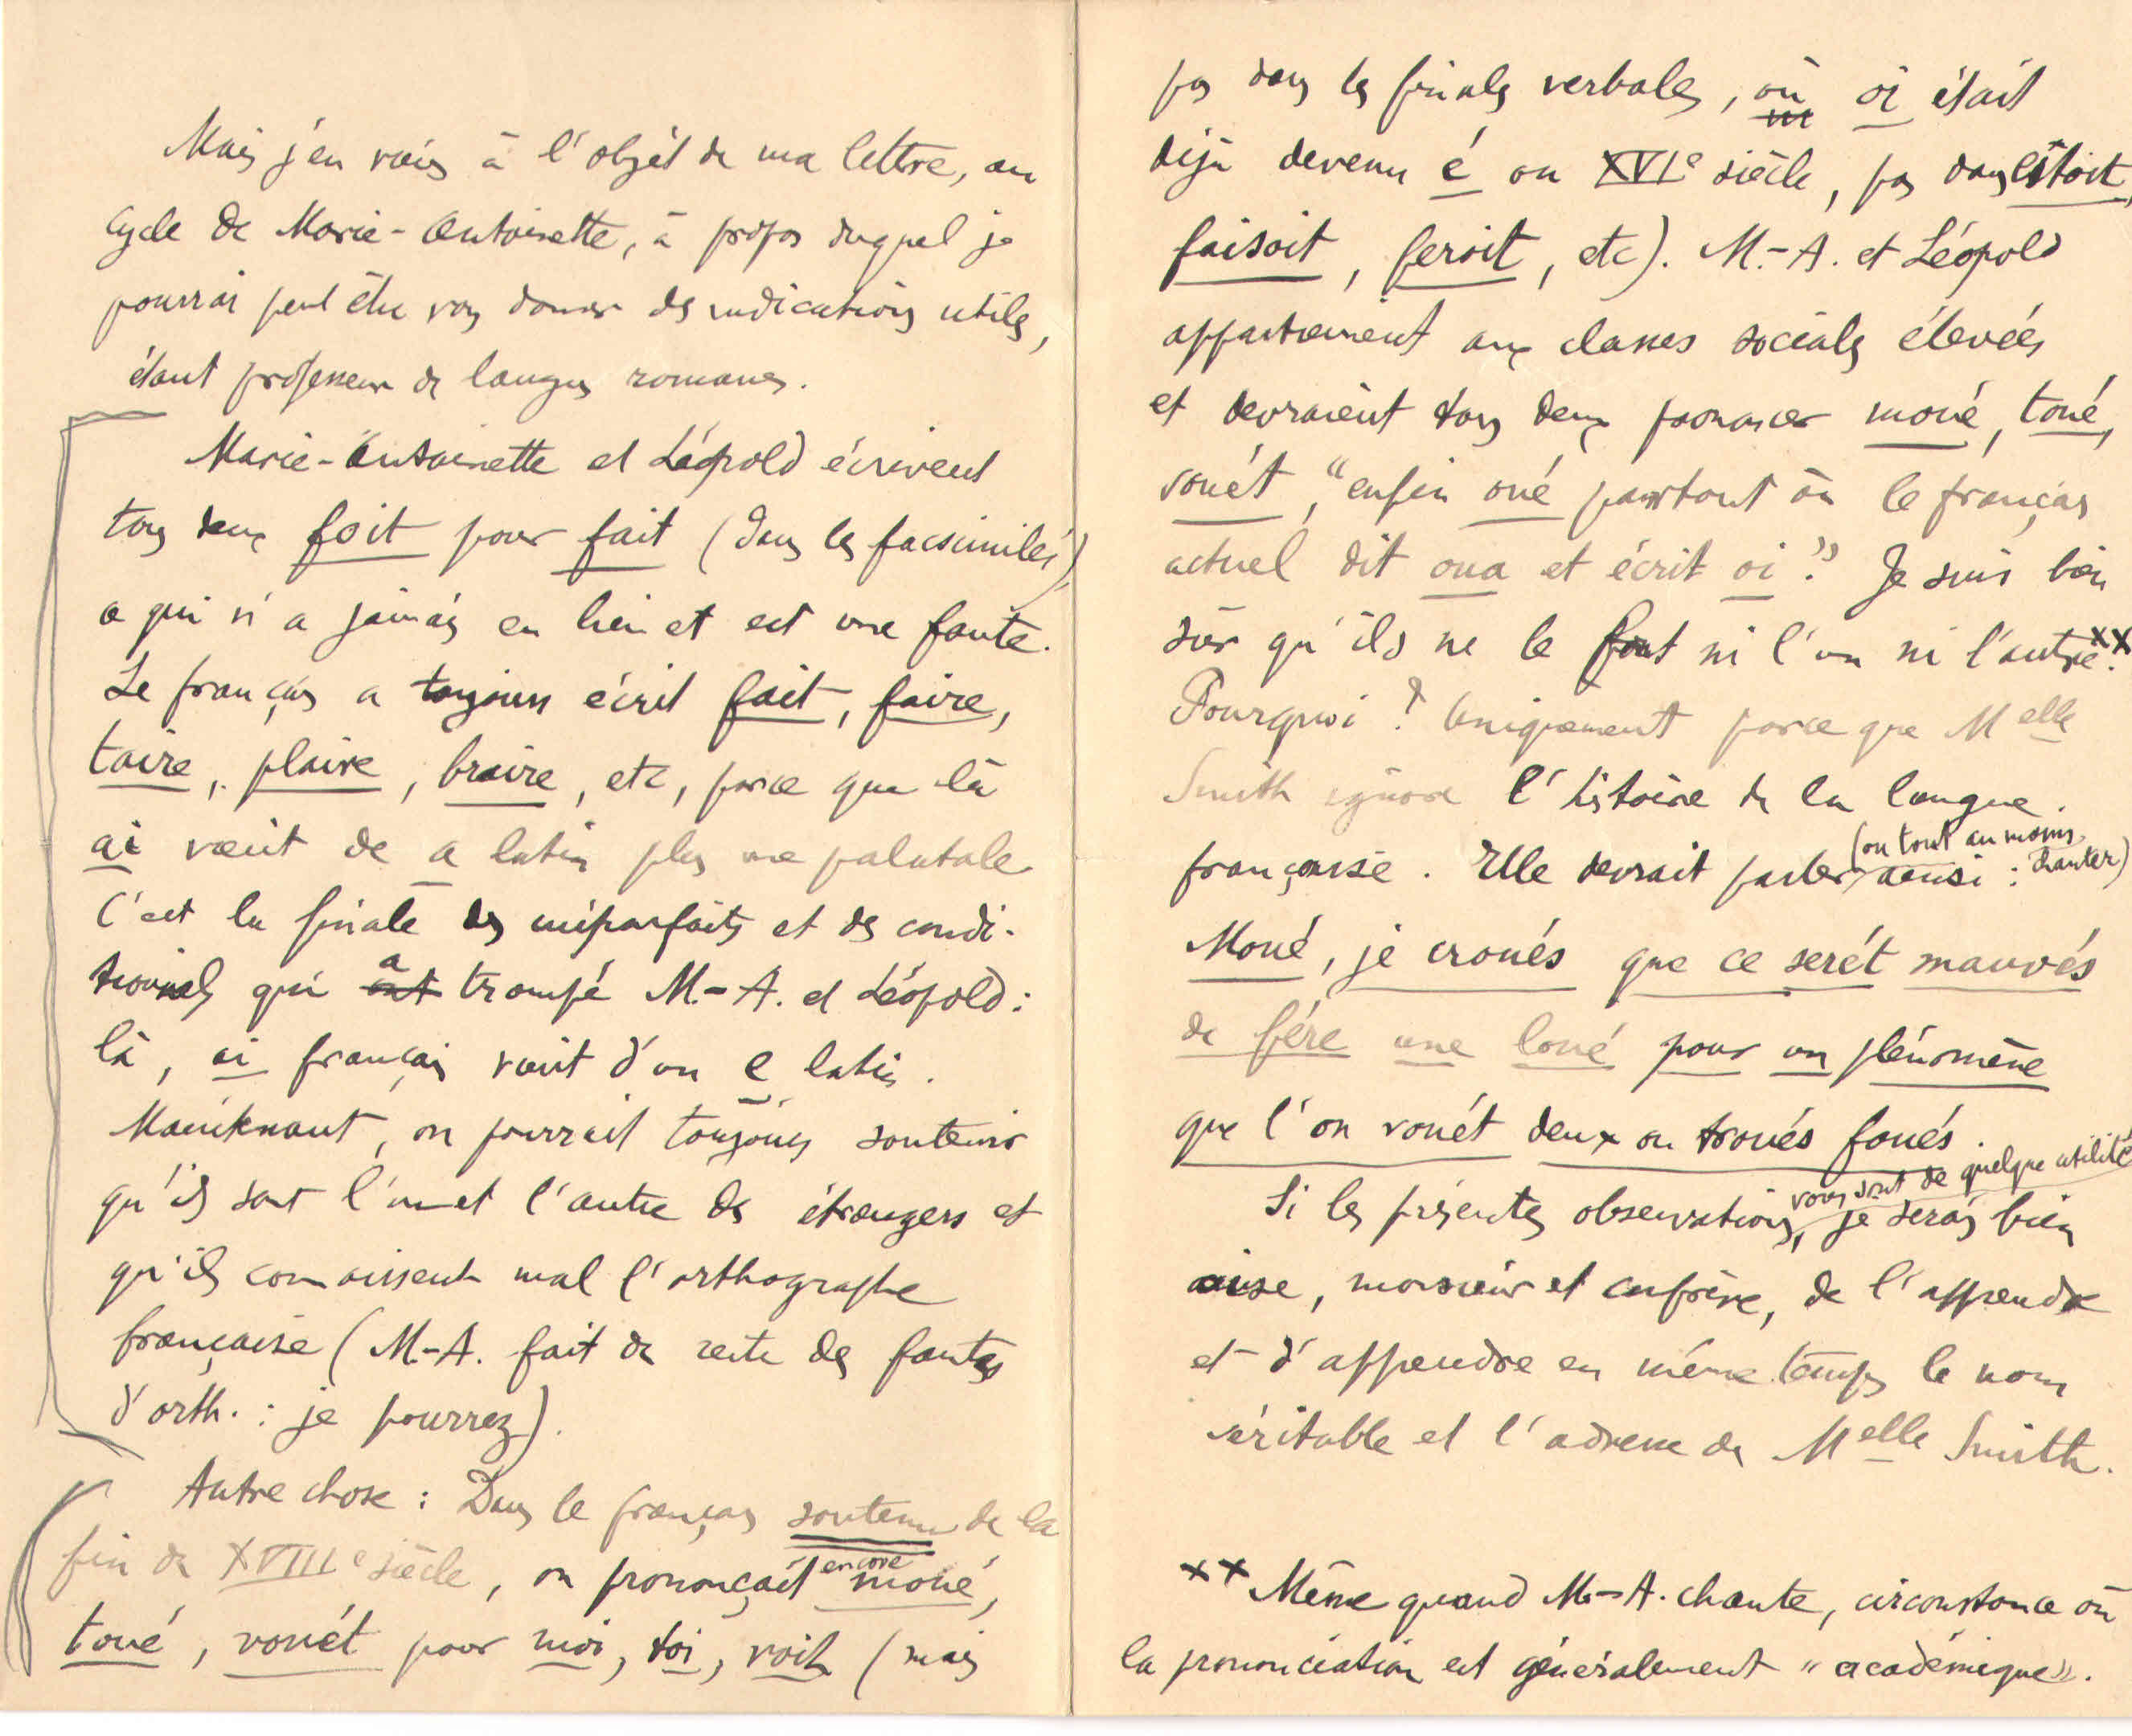 Mais j'en viens à l'objet de ma lettre, au
cycle de Marie-Antoinette, à propos duquel je
pourrai peut être vous donner des indications utiles,
étant professeur de langues romanes.
Marie-Antoinette et Léopold écrivent
tous deux foit pour fait (dans les facsimilés)
ce qui n'a jamais eu lieu et est une faute.
Le français a toujours écrit fait, faire,
taire, plaire, braire, etc, parce que là
ai vient de a latin plus une palatale
C'est la finale des imparfaits et des condi-
tionnels qui a trompé M.-A. et Léopold :
là, ai français vient d'un e latin.
Maintenant, on pourrait toujours soutenir
qu'ils sont l'un et l'autre des étrangers et
qu'ils connaissent mal l'orthographe
française (M.-A. fait du reste des fautes
d'orth. : je pourrez).
Autre chose : Dans le français soutenu de la
fin du XVIIIe siècle, on prononçait encore moué,
toué, vouét pour moi, toi, voit (mais
pas dans les finales verbales, où oi était
déjà devenu é au XVIe siècle, pas dans étoit,
faisoit, feroit, etc). M.-A. et Léopold
appartiennent aux classes sociales élevées
et devraient tous deux prononcer moué, toué,
vouét, "enfin oué partout où le français
actuel dit oua et écrit oi." Je suis bien
sûr qu'ils ne le font ni l'un ni l'autre xx.
Pourquoi ? Uniquement parce que Melle
Smith ignore l'histoire de la langue
française. Elle devrait parler (ou tout au moins chanter) ainsi :
Moué, je croués que ce serét mauvés
de fére une loué pour un phénomène
que l'on vouét deux ou troués foués.
Si les présentes observations vous sont de quelque utilité, je serais bien
aise, monsieur et confrère, de l'apprendre
et d'apprendre en même temps le nom
véritable et l'adresse de Melle Smith.
xx Même quand M.-A. chante, circonstance où
la prononciation est généralement « académique ».